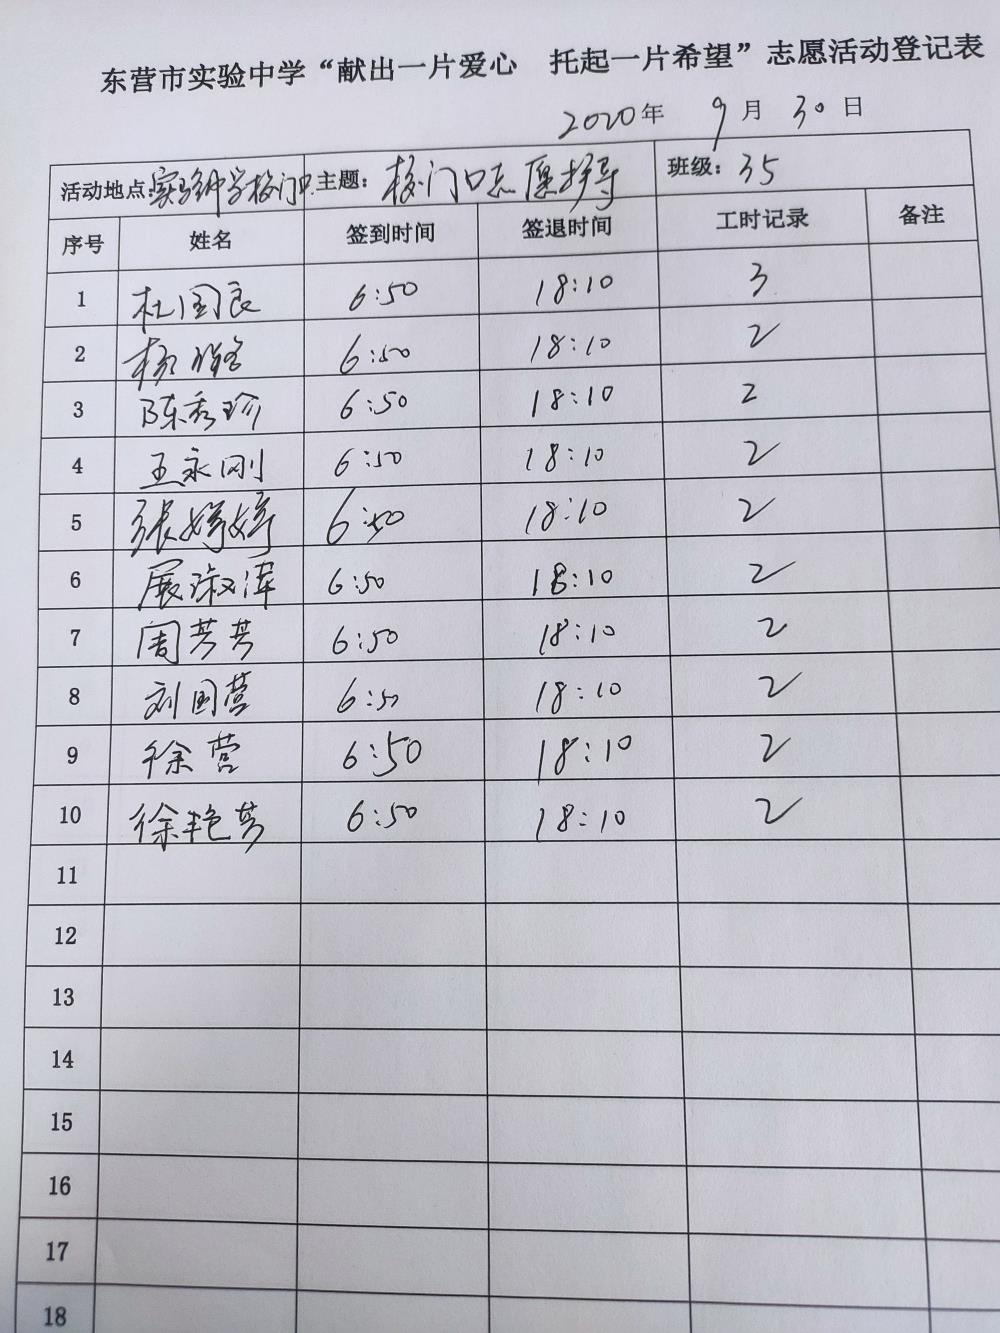 东营市实验中学“献出一片爱心 托起一片希望”志愿活动登记表
2020年 9月 30日
活动地点:实验中学校门口 主题: 校门口志愿护导 班级: 35
序号 姓名 签到时间 签退时间 工时记录 备注
1 杜国良 6:50 18:10 3
2 杨 6:50 18:10 2
3 陈秀珍 6:50 18:10 2
4 王永刚 6:50 18:10 2
5 张婷婷 6:50 18:10 2
6 展淑萍 6:50 18:10 2
7 周芳芳 6:50 18:10 2
8 刘国营 6:50 18:10 2
9 徐营 6:50 18:10 2
10 徐艳芳 6:50 18:10 2
11
12
13
14
15
16
17
18